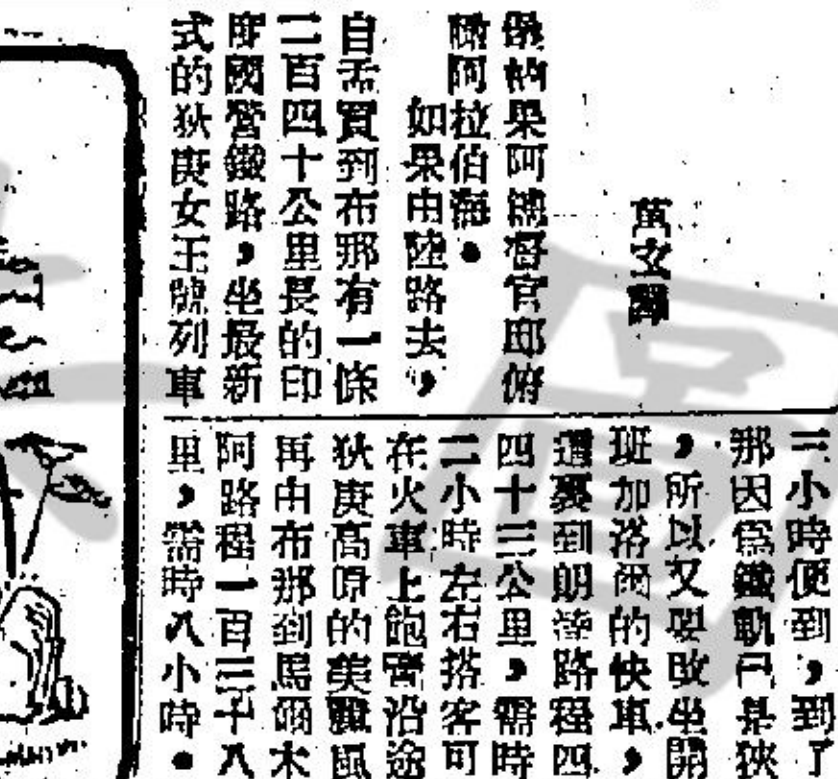 萬文譯
果阿總督官邸俯
瞰阿拉伯海。
如果由陸路去,
自孟買到布那有一條
二百四十公里長的印
度國營鐵路,坐最新
式的狄庚女王號列車
三小時便到,到了
那因爲鐵軌已是狹
,所以又要改坐開
班加洛爾的快車,
到朗達路程四
四十三公里,需時
二小時左右搭客可
在火車上飽嘗沿途
狄庚高原的美麗風
再由布那到馬爾木
阿路程一百三十八
里,需時八小時。
圖